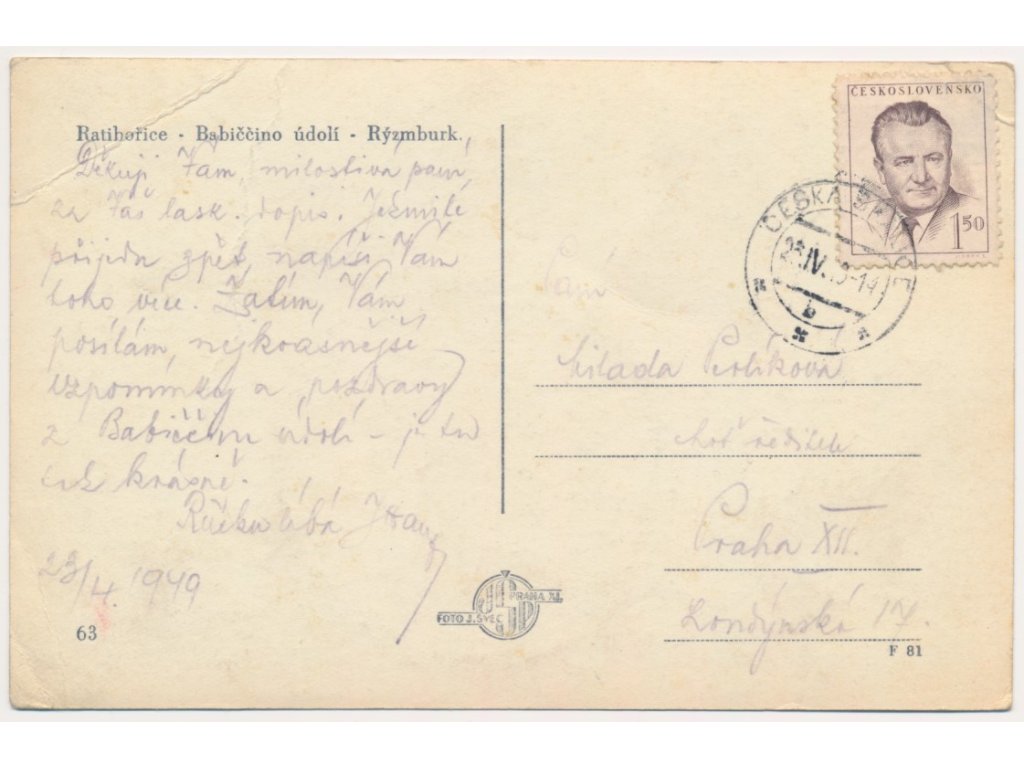 Ratibořice - Babiččino údolí - Rýzmburk.
Děkuji Vám, milostivá paní,
za Váš lask. dopis. Jakmile
přijedu zpět, napíši Vám
toho více. Zatím Vám
posílám nejkrásnější
vzpomínky a pozdravy
z Babiččina údolí - je tu
tak krásně.
Ručku líbá
23/4. 1949
63
FOTO J. ŠVEC
PRAHA XI.
ČESKOSLOVENSKO
1 50
ČESKÁ SKALICE
23.IV.49-14
b
Paní
Milada Perlíková,
choť ředitele
Praha XII.
Londýnská 17.
F 81